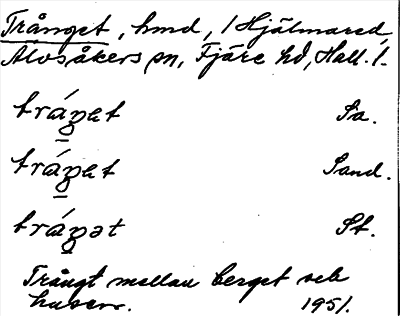 Trånget, hmd, /Hjälmared,
Älvsåkers sn, Fjäre hd, Hall./.
tráŋət Sa.
tráŋət Sand.
tráŋət St.
Trångt mellan berget och
husen. 1951.